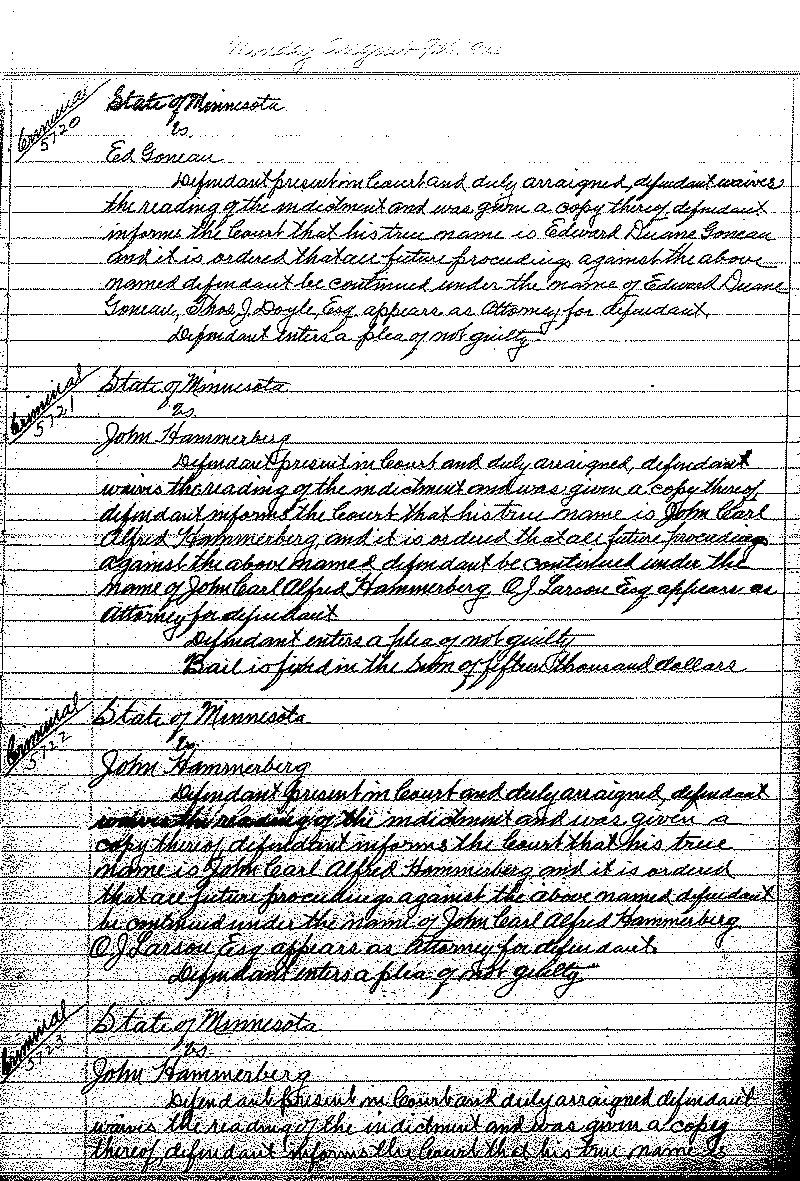 Monday August
Criminal
5720
State of Minnesota
vs.
Ed Goneau
Defendant present in Court and duly arraigned, defendant waives
the reading of the indictment and was given a copy thereof defendant
informs the Court that his true name is Edward Duane Goneau
and it is ordered that all future proceedings against the above
named defendant be continued under the name of Edward Duane
Goneau, Thos J. Doyle, Esq appears as Attorney for defendant.
Defendant enters a plea of not guilty.
Criminal
5721
State of Minnesota
vs.
John Hammerberg
Defendant present in Court and duly arraigned, defendant
waives the reading of the indictment and was given a copy thereof,
defendant informs the Court that his true name is John Carl
Alfred Hammerberg, and it is ordered that all future proceedings
against the above named defendant be continued under the
name of John Carl Alfred Hammerberg O.J. Larson Esq appears as
Attorney for defendant
Defendant enters a plea of not guilty
Bail is fixed in the sum of fifteen thousand dollars
Criminal
5722
State of Minnesota
vs.
John Hammerberg
Defendant present in Court and duly arraigned, defendant
waives the reading of the indictment and was given a
copy thereof defendant informs the Court that his true
name is John Carl Alfred Hammerberg and it is ordered
that all future proceedings against the above named defendant
be continued under the name of John Carl Alfred Hammerberg
O.J. Larson Esq appears as Attorney for defendant.
Defendant enters a plea of not guilty
Criminal
5723
State of Minnesota
vs.
John Hammerberg
Defendant present in Court and duly arraigned defendant
waives the reading of the indictment and was given a copy
thereof, defendant informs the Court that his true name is